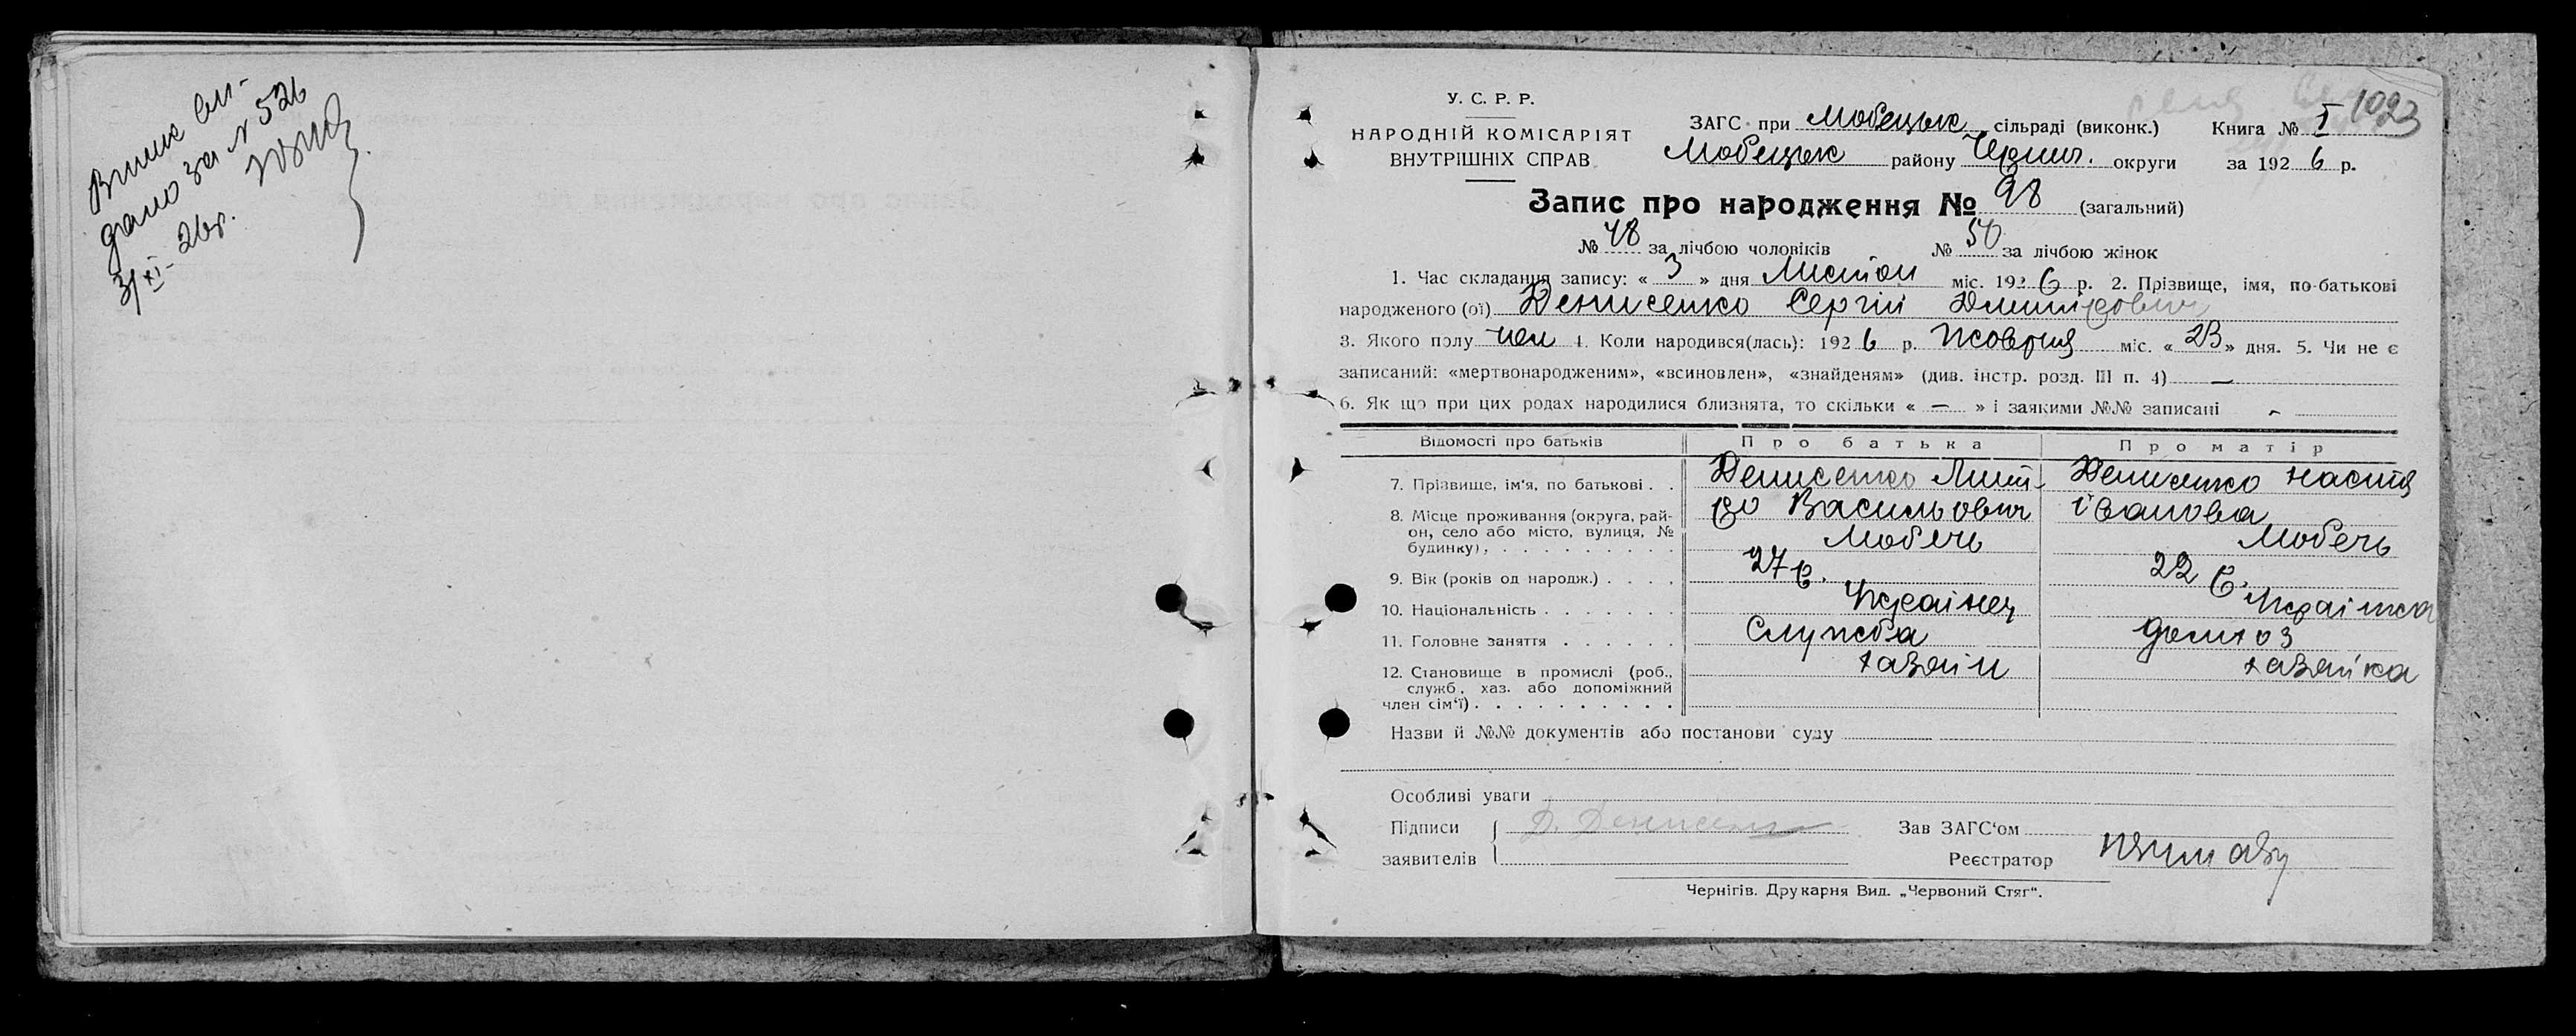 Випис ви-
дано за N 526
3/XI-26р.
1023
У. С. Р. Р.
НАРОДНІЙ КОМІСАРІЯТ
ВНУТРІШНІХ СПРАВ
ЗАГС при Любецьк сільраді (виконк.) Книга № I
Любецьк району Черниг. округи за 1926 р.
Запис про народження № 98 (загальний)
№ 48 за лічбою чоловіків № 50 за лічбою жінок
1. Час складання запису: « 3 » дня Листоп міс. 1926 р. 2. Прізвище, імя, по-батькові
народженого (ої) Денисенко Сергій Дмитрович
3. Якого полу чол 4. Коли народився(лась): 1926 р. Жовтня міс. « 23 » дня. 5. Чи не є
записаний: «мертвонародженим», «всиновлен», «знайденям» (див. інстр. розд. III п. 4) —
6. Як що при цих родах народилися близнята, то скільки « — » і заякими №№ записані -
Відомості про батьків Про батька Про матір
7. Прізвище, ім'я, по батькові . . Денисенко Дмит- Денисенко Настя
8. Місце проживання (округа, рай- ро Васильович Іванова
он, село або місто, вулиця, №
будинку) . . . . . . . . . . Любечь Любечь
9. Вік (років од народж.) . . . . 27 р. 22 р.
10. Національність . . . . . . . Українец Українка
11. Головне заняття . . . . . . Служба домхоз
12. Становище в промислі (роб., хазяїн хазяйка
служб, хаз. або допоміжний
член сім'ї) . . . . . . . . . .
Назви й №№ документів або постанови суду
Особливі уваги
Підписи Д. Денисенко Зав ЗАГС'ом
заявителів Реєстратор
Чернігів. Друкарня Вид. „Червоний Стяг".